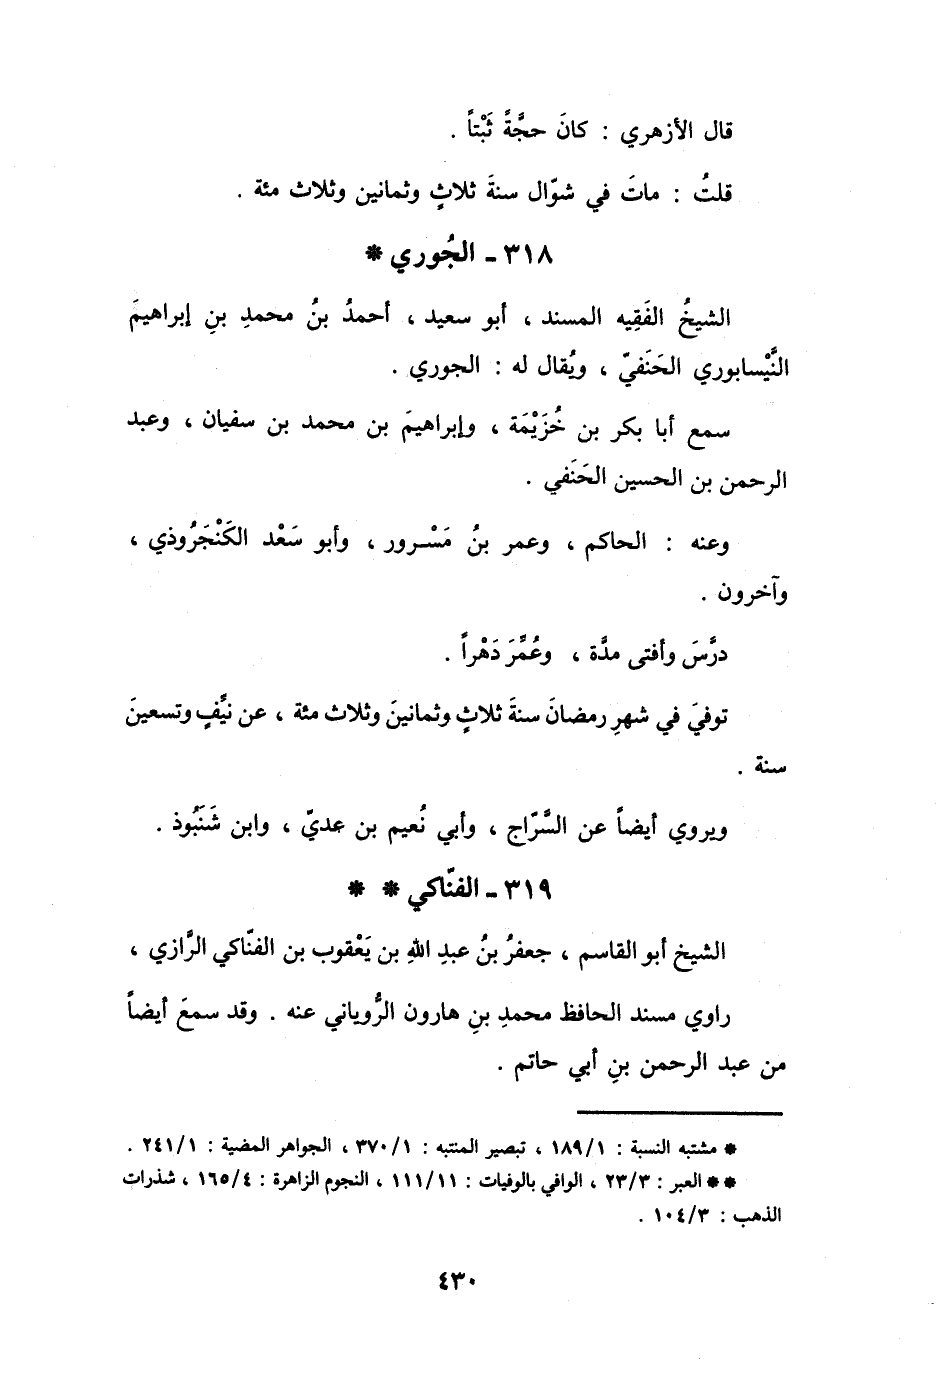 قال الأزهري : كانَ حجَّةً ثَبْتاً .
قلتُ : ماتَ في شوّال سنةَ ثلاثٍ وثمانين وثلاث مئة .
٣١٨ - الجُوري *
الشيخُ الفَقِيه المسند ، أبو سعيد ، أحمدُ بنُ محمدِ بنِ إبراهيمَ
النَّيْسابوري الحَنَفيّ ، ويُقال له : الجوري .
سمع أبا بكر بن خُزَيْمَة ، وإبراهيمَ بن محمد بن سفيان ، وعبد
الرحمن بن الحسين الحَنَفي .
وعنه : الحاكم ، وعمر بنُ مَسْرور ، وأبو سَعْد الكَنْجَرُوذي ،
وآخرون .
درَّسَ وأفتى مدَّة ، وعُمِّرَ دَهْراً .
توفيَ في شهرِ رمضانَ سنةَ ثلاثٍ وثمانينَ وثلاث مئة ، عن نيَّفٍ وتسعينَ
سنة .
ويروي أيضاً عن السَّرّاج ، وأبي نُعيم بن عديّ ، وابن شَنَبُوذ .
٣١٩ - الفنّاكي * *
الشيخ أبو القاسم ، جعفرُ بنُ عبدِ اللهِ بن يَعْقوب بن الفنّاكي الرَّازي ،
راوي مسند الحافظ محمدِ بنِ هارون الرُّوياني عنه . وقد سمعَ أيضاً
من عبد الرحمن بنِ أبي حاتم .
* مشتبه النسبة : ١٨٩/١ ، تبصير المنتبه : ٣٧٠/١ ، الجواهر المضية : ٢٤١/١ .
* * العبر : ٢٣/٣ ، الوافي بالوفيات : ١١١/١١ ، النجوم الزاهرة : ١٦٥/٤ ، شذرات
الذهب : ١٠٤/٣ .
٤٣٠